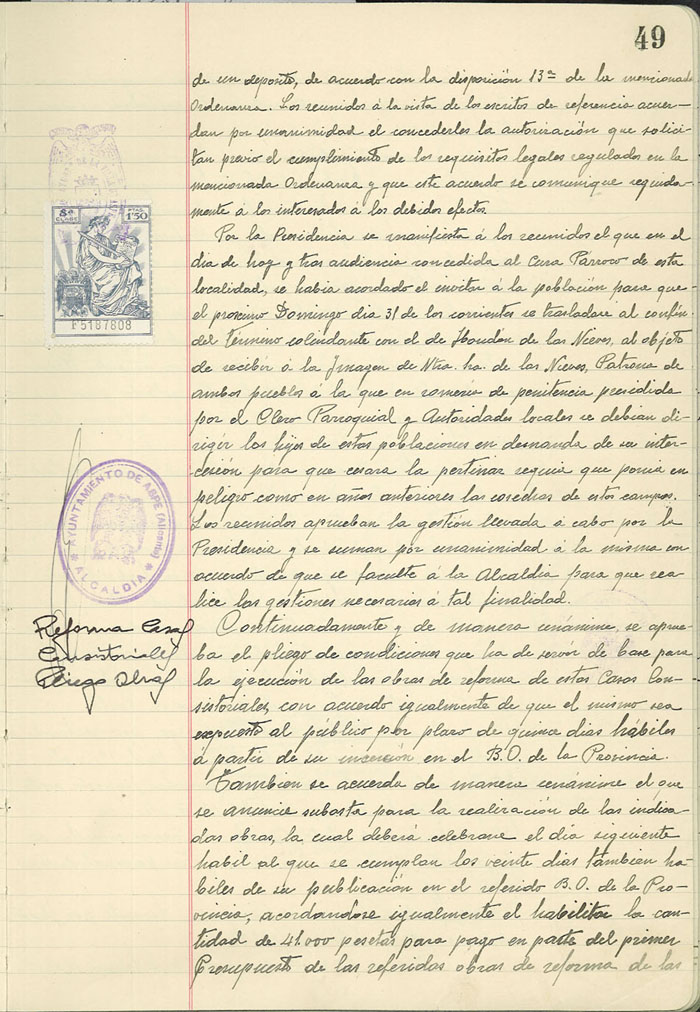 49
de un deposito, de acuerdo con la disposición 13ª de la mencionada
Ordenanza. Los reunidos á la vista de los escritos de referencia acuer-
dan por unanimidad el concederles la autorización que solici-
tan previo el cumplimiento de los requisitos legales regulados en la
mencionada Ordenanza y que este acuerdo se comunique seguida-
mente á los interesados á los debidos efectos.
Por la Presidencia se manifiesta á los reunidos el que en el
dia de hoy y tras audiencia concedida al Cura Parroco de esta
localidad, se habia acordado el invitar á la población para que
el proximo Domingo dia 31 de los corrientes se trasladase al confin
del término colindante con el de Hondón de las Nieves, al objeto
de recibir á la Imagen de Ntra. Sra. de las Nieves, Patrona de
ambos pueblos á la que en romeria de penitencia presidida
por el Clero Parroquial y Autoridades locales se debian di-
rigir los hijos de estas poblaciones en demanda de su inter-
cesión para que cesara la pertinaz sequia que ponia en
peligro como en años anteriores las cosechas de estos campos.
Los reunidos aprueban la gestión llevada á cabo por la
Presidencia y se suman por unanimidad á la misma con
acuerdo de que se faculte á la Alcaldia para que rea-
lice las gestiones necesarias á tal finalidad.
Continuadamente y de manera unánime, se aprue-
ba el pliego de condiciones que ha de servir de base para
la ejecución de las obras de reforma de estas Casas Con-
sistoriales con acuerdo igualmente de que el mismo sea
expuesto al público por plazo de quince dias hábiles
á partir de su inserción en el B.O. de la Provincia.
Tambien se acuerda de manera unánime el que
se anuncie subasta para la realización de las indica-
das obras, la cual deberá celebrarse el dia siguiente
habil al que se cumplan los veinte dias tambien há-
biles de su publicación en el referido B.O. de la Pro-
vincia, acordandose igualmente el habilitar la can-
tidad de 41.000 pesetas para pago en parte del primer
Presupuesto de las referidas obras de reforma de las
8ª CLASE
PTAS. 1'50
F5187808
AYUNTAMIENTO DE ASPE (Alicante)
ALCALDIA
Reforma Casas
Consistoriales
Pliego Obras